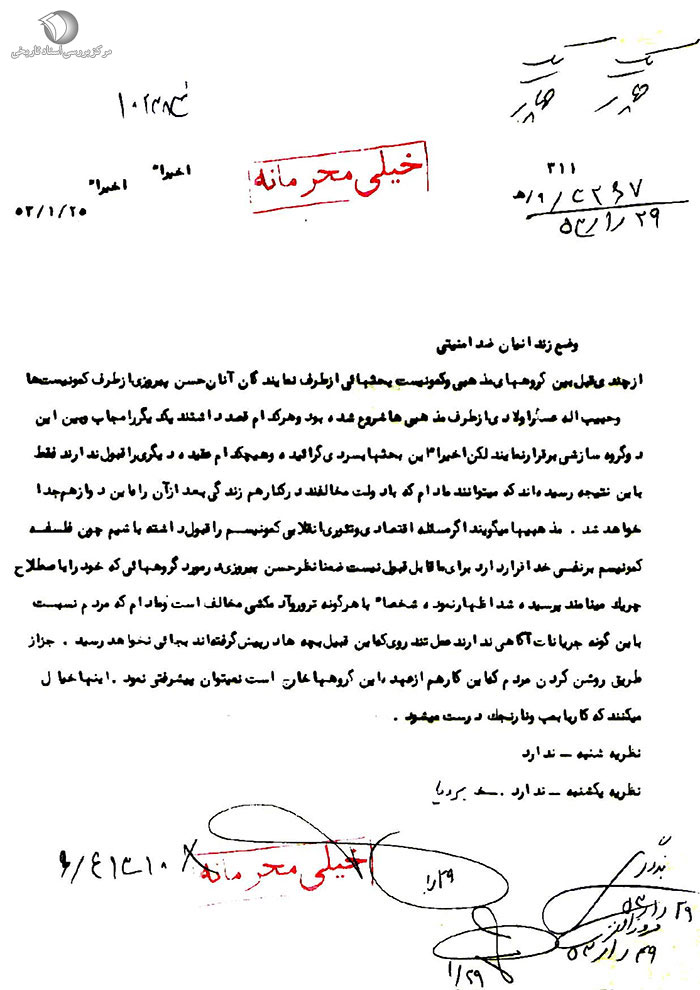 مرکز بررسی اسناد تاریخی
خیلی محرمانه
۳۱۱
اخیراً
اخیراً
۵۳/۱/۲۵
وضع زندانیان ضد امنیتی
از چندی قبل بین گروههای مذهبی و کمونیست بحثهائی از طرف نمایندگان آنان حسن پیروزی از طرف کمونیست‌ها
و حبیب اله عسگراولادی از طرف مذهبی ها شروع شده بود و هر کدام قصد داشتند یکدیگر را مجاب و بین این
دو گروه سازشی برقرار نمایند لکن اخیراً این بحثها بسردی گرائیده و هیچکدام عقیده دیگری را قبول ندارند فقط
باین نتیجه رسیده‌اند که میتوانند مادام که با دولت مخالفند در کنار هم زندگی بعد از آن راه این دو از هم جدا
خواهد شد . مذهبیها میگویند اگر مسئله اقتصادی و تئوری انقلابی کمونیسم را قبول داشته باشیم چون فلسفه
کمونیسم بر نفی خدا قرار دارد برای ما قابل قبول نیست ضمناً نظر حسن پیروزی در مورد گروههائی که خود را باصطلاح
چریک مینامند پرسیده شد اظهار نموده شخصاً با هرگونه ترور و آدمکشی مخالف است و مادام که مردم نسبت
باین گونه جریانات آگاهی ندارند عمل تند روی که این قبیل بچه ها در پیش گرفته‌اند بجائی نخواهد رسید . جز از
طریق روشن کردن مردم که این کار هم از عهده این گروهها خارج است نمیتوان پیشرفتی نمود . اینها خیال
میکنند که کار با بمب و نارنجک درست میشود .
نظریه شنبه – ندارد
نظریه یکشنبه – ندارد .
خیلی محرمانه